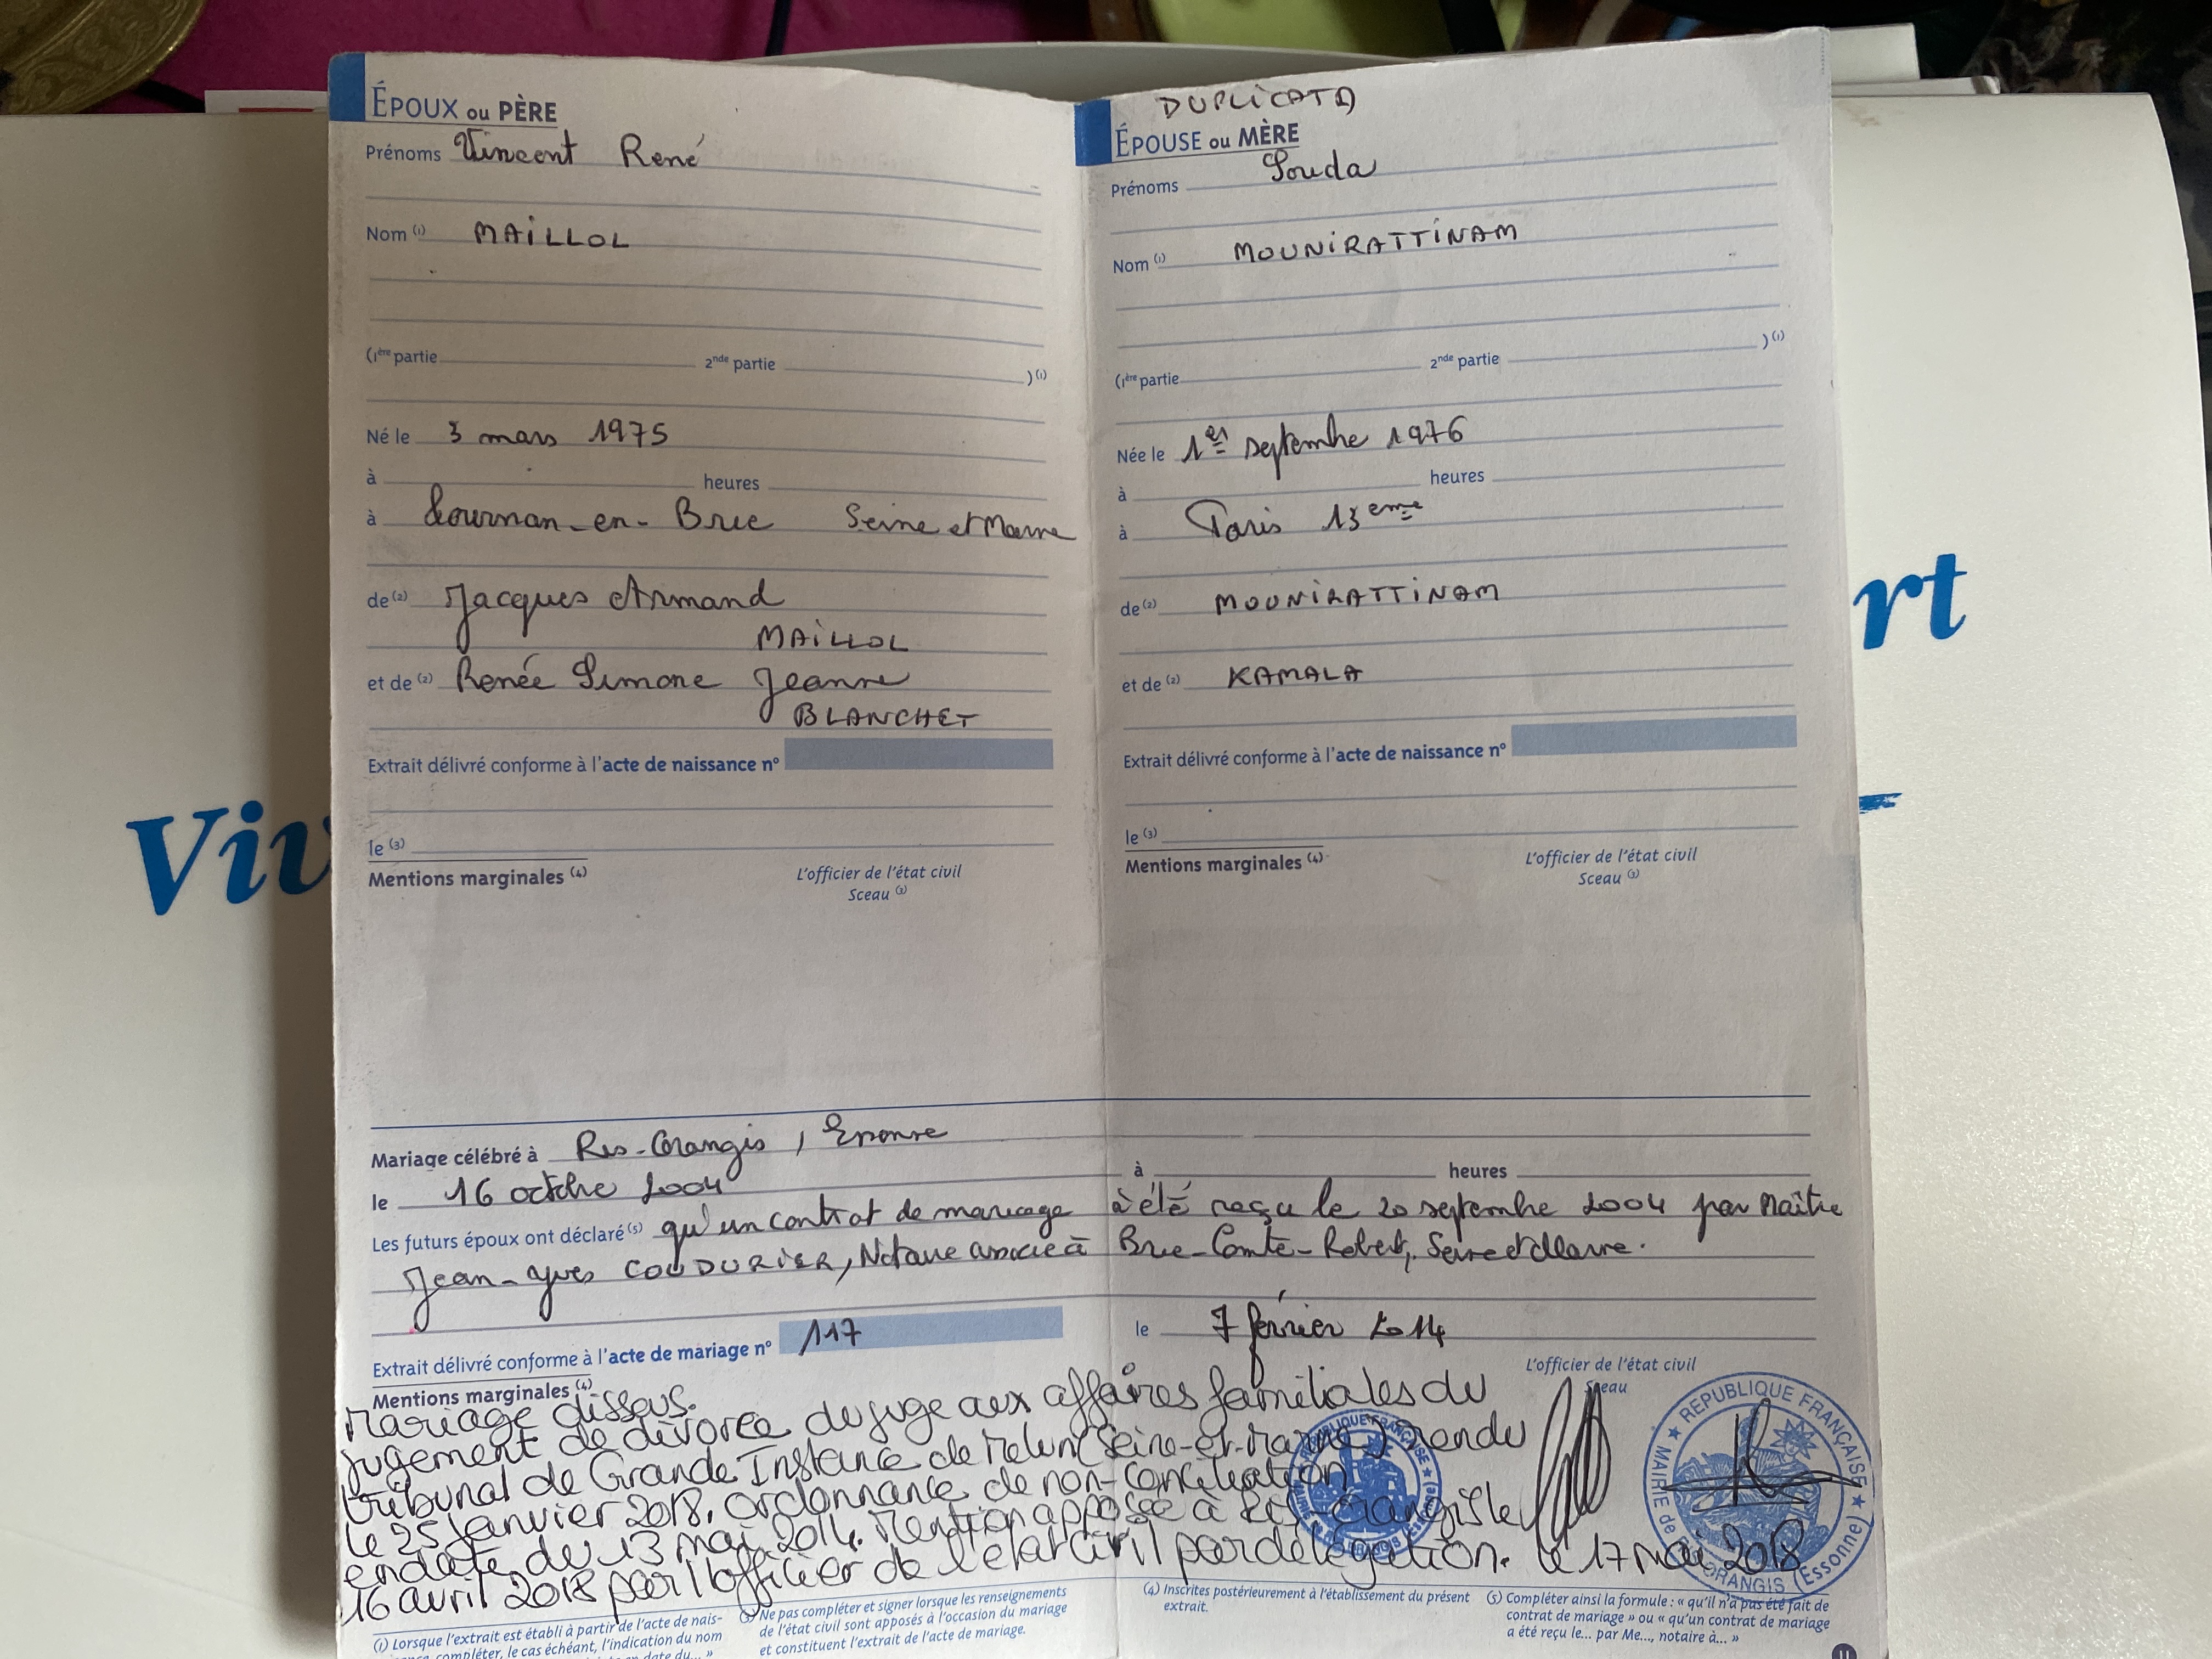 ÉPOUX ou PÈRE
Prénoms Vincent René
Nom (1) MAILLOL
(1ère partie 2nde partie )(1)
Né le 3 mars 1975
à heures
à Tournan-en-Brie Seine et Marne
de (2) Jacques Armand
MAILLOL
et de (2) Renée Simone Jeanne
BLANCHET
Extrait délivré conforme à l'acte de naissance n°
le (3)
Mentions marginales (4)
L'officier de l'état civil
Sceau (3)
DUPLICATA
ÉPOUSE ou MÈRE
Prénoms Souda
Nom (1) MOUNIRATTINAM
(1ère partie 2nde partie )(1)
Née le 1er septembre 1976
à heures
à Paris 13eme
de (2) MOUNIRATTINAM
et de (2) KAMALA
Extrait délivré conforme à l'acte de naissance n°
le (3)
Mentions marginales (4)
L'officier de l'état civil
Sceau (3)
Mariage célébré à Ris-Orangis, Essonne
le 16 octobre 2004 à heures
Les futurs époux ont déclaré (5) qu'un contrat de mariage à été reçu le 20 septembre 2004 par Maître
Jean-Yves COUDURIER, Notaire associé à Brie-Comte-Robert, Seine et Marne.
Extrait délivré conforme à l'acte de mariage n° 117 le 7 février 2014
Mentions marginales (4)
L'officier de l'état civil
Sceau
Mariage dissous.
jugement de divorce du juge aux affaires familiales du
tribunal de Grande Instance de Melun (Seine-et-Marne) rendu
le 25 janvier 2018. ordonnance de non-conciliation
en date du 13 mai 2014. Mention apposée à Ris-Orangis le
16 avril 2018 par l'officier de l'état civil par délégation. le 17 mai 2018
★ RÉPUBLIQUE FRANÇAISE ★
MAIRIE de ORANGIS (Essonne)
RÉPUBLIQUE FRANÇAISE
(1) Lorsque l'extrait est établi à partir de l'acte de nais-
compléter, le cas échéant, l'indication du nom
(3) Ne pas compléter et signer lorsque les renseignements
de l'état civil sont apposés à l'occasion du mariage
et constituent l'extrait de l'acte de mariage.
(4) Inscrites postérieurement à l'établissement du présent
extrait.
(5) Compléter ainsi la formule : « qu'il n'a pas été fait de
contrat de mariage » ou « qu'un contrat de mariage
a été reçu le... par Me..., notaire à... »
Viv
rt